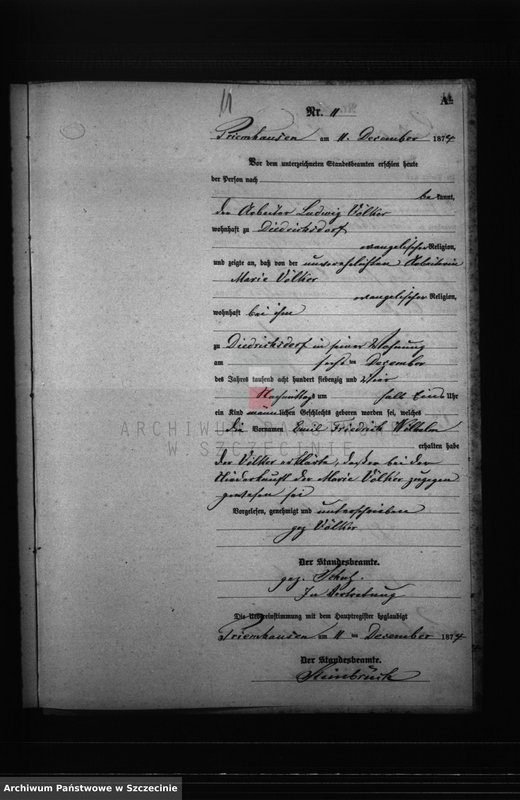 11
A.
Nr. 11
Priemhausen am 11. December 1874
Vor dem unterzeichneten Standesbeamten erschien heute
der Person nach
bekannt,
der Arbeiter Ludwig Völker
wohnhaft zu Diedrichsdorf
evangelischer Religion,
und zeigte an, daß von der unverehelichten Arbeiterin
Marie Völker
evangelischer Religion,
wohnhaft bei ihm
zu Diedrichsdorf in seiner Wohnung
am sechsten Dezember
des Jahres tausend acht hundert siebenzig und vier
Nachmittags um halb Eins Uhr
ein Kind männlichen Geschlechts geboren worden sei, welches
die Vornamen Emil Friedrich Wilhelm
erhalten habe
der Völker erklärte, daß er bei der
Niederkunft der Marie Völker zugegen
gewesen sei
Vorgelesen, genehmigt und unterschrieben
gez Völker
Der Standesbeamte.
gez. Schulz.
In Vertretung
Die Uebereinstimmung mit dem Hauptregister beglaubigt
Priemhausen am 11 ten December 1874
Der Standesbeamte.
Steinbrück
ARCHIWUM PAŃSTWOWE
W SZCZECINIE
Archiwum Państwowe w Szczecinie